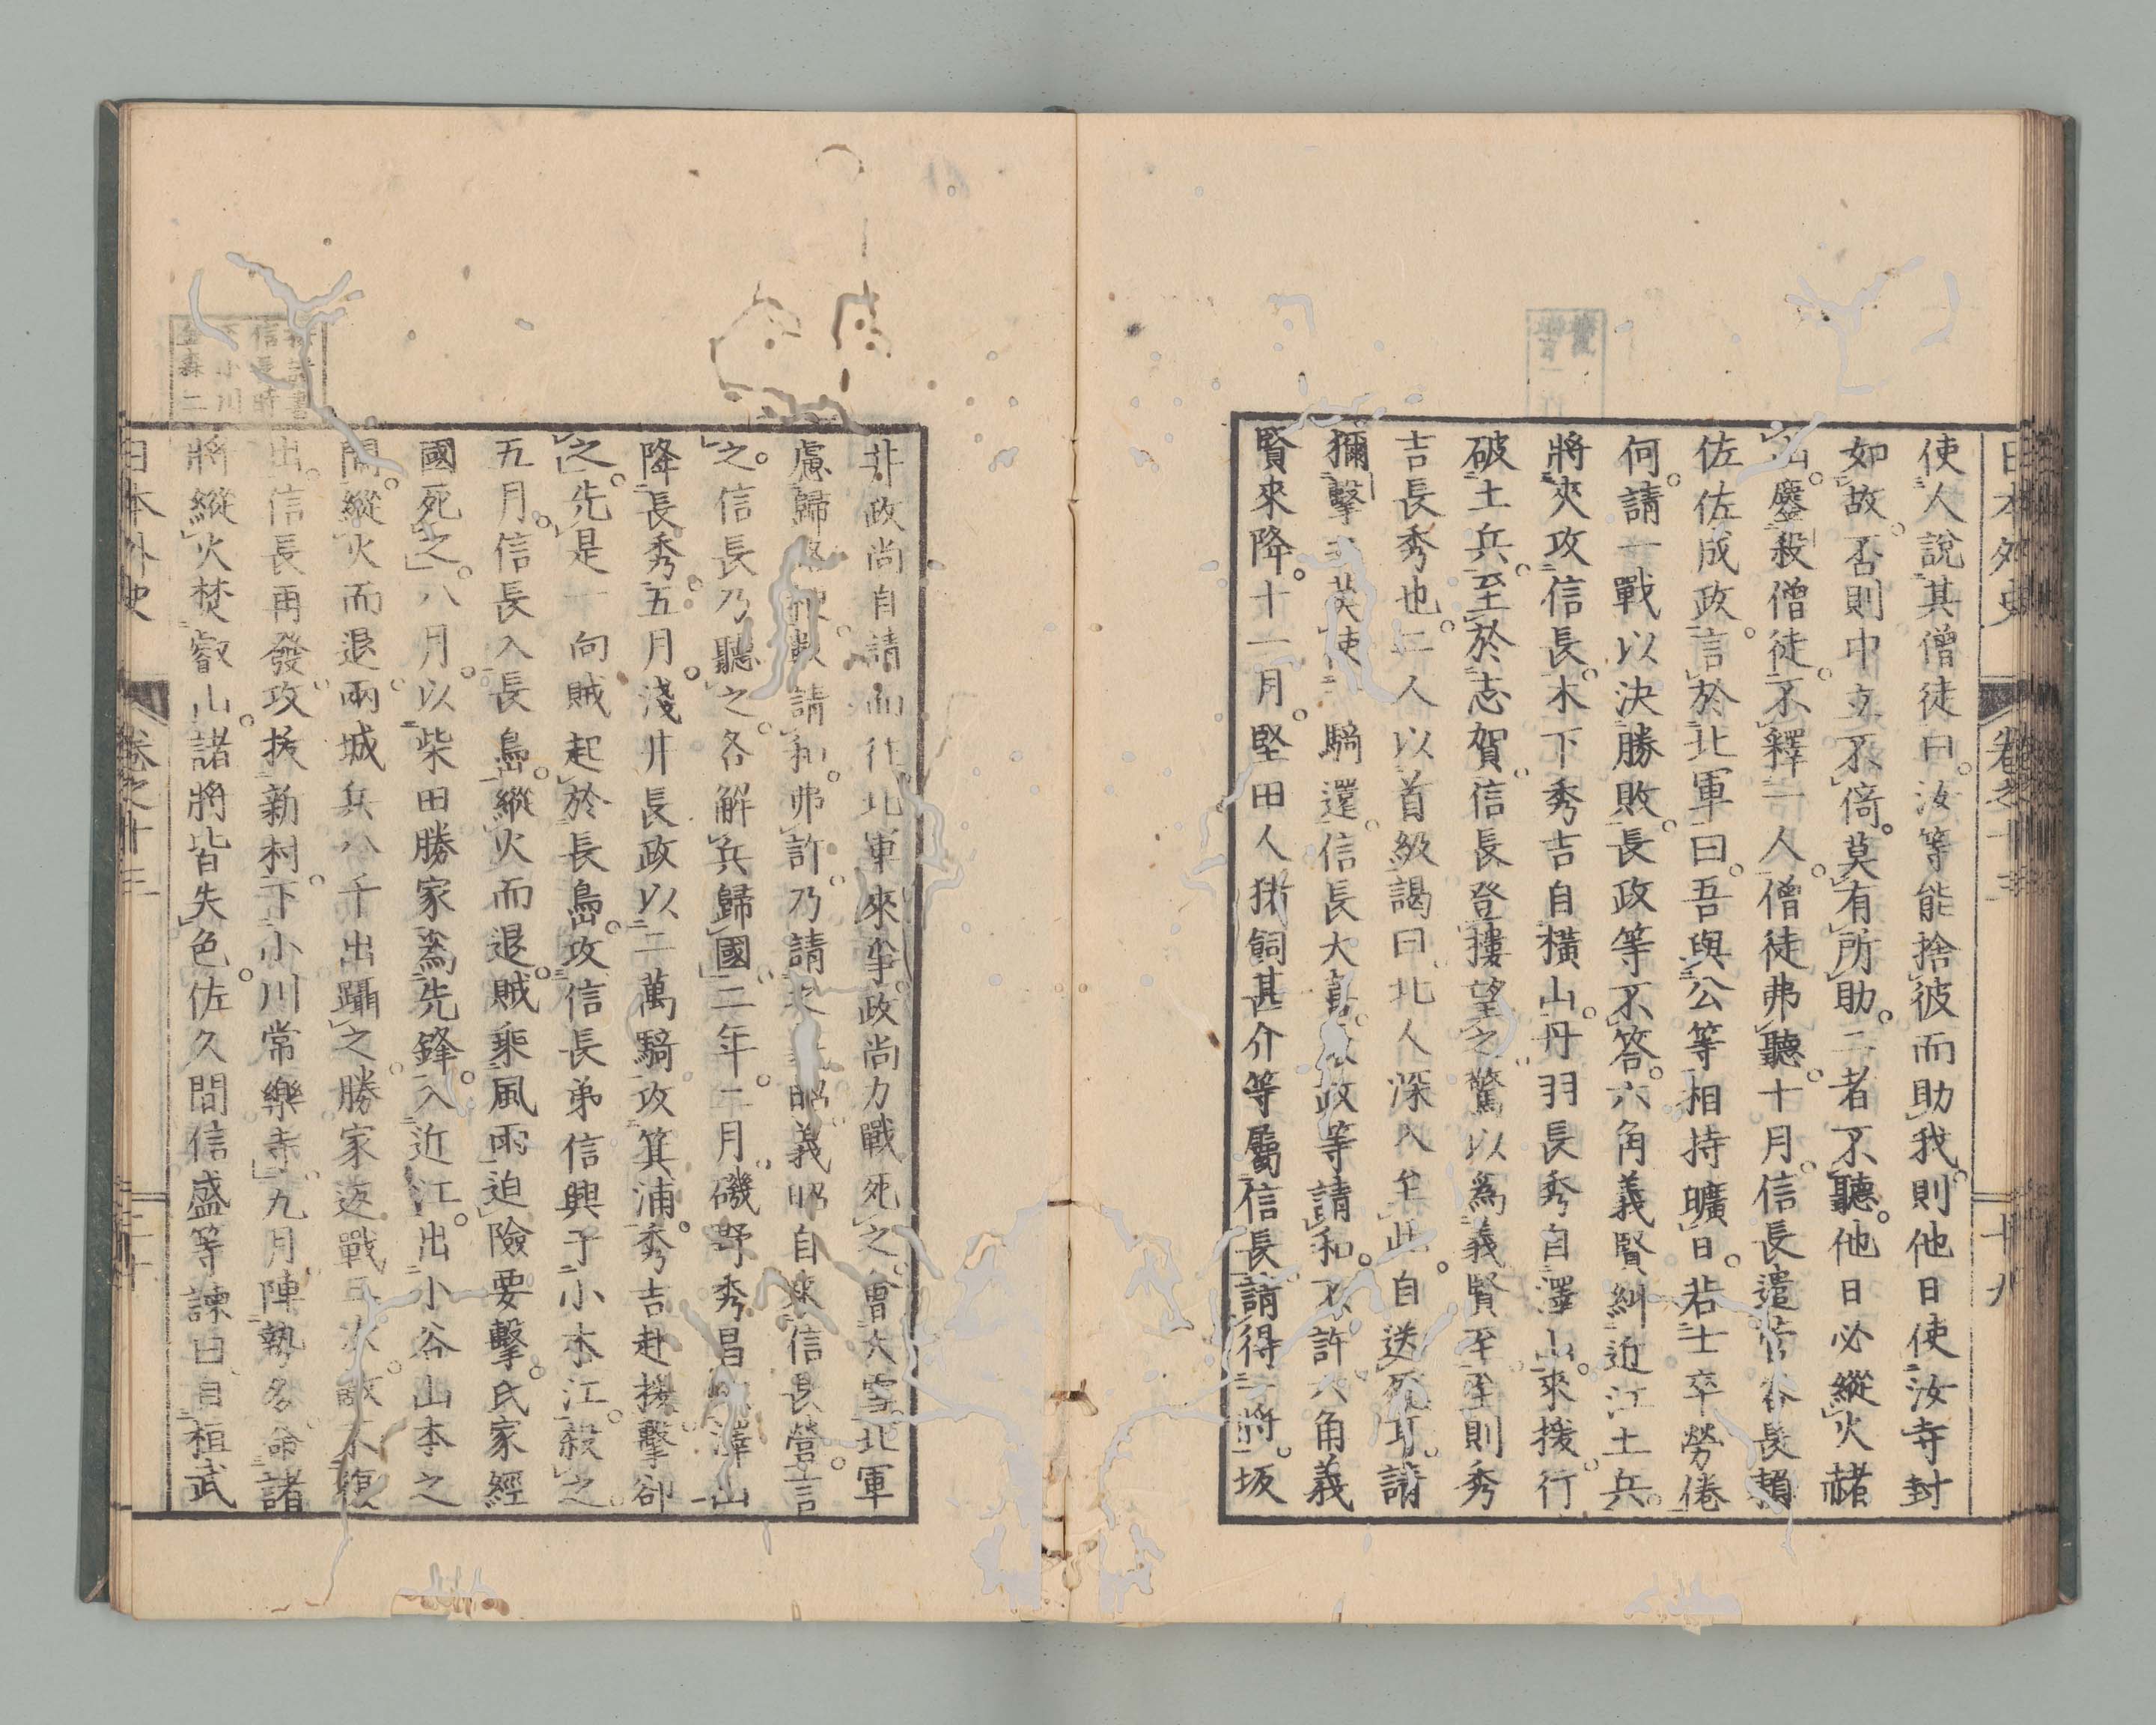 日本外史 卷之十三 十九
使人說其僧徒曰。汝等能捨彼而助我。則他日使汝寺封
如故。否則中立不倚。莫有所助。二者不聽。他日必縱火赭
山。鏖殺僧徒。不釋一人。僧徒弗聽。十月。信長遣菅谷長賴
佐佐成政。言於北軍曰。吾與公等相持曠日。若士卒勞倦
何。請一戰以決勝敗。長政等不答。六角義賢糾近江土兵。
將夾攻信長。木下秀吉自橫山。丹羽長秀自澤山。來援。行
破土兵。至於志賀。信長登摟望之。驚以爲義賢至。至則秀
吉長秀也。二人以首級謁曰。北人深入至此。自送死耳。請
獮擊 使 騎還。信長大喜。 政等請和。不許。六角義
賢來降。十一月。堅田人猪飼甚介等屬信長。請得一將。坂
井政尚自請而往。北軍來爭。政尚力戰死之。會大雪。北軍
慮歸路 請和。弗許。乃請 義昭。義昭自來信長營。言
之。信長乃聽之。各解兵歸國。二年。二月。磯野秀昌 澤山
降長秀。五月。淺井長政以二萬騎攻箕浦。秀吉赴援。擊卻
之。先是一向賊起於長島。攻信長弟信興于小木江。殺之。
五月。信長入長島。縱火而退。賊乘風雨迫險要擊。氏家經
國死之。八月。以柴田勝家爲先鋒。入近江。出小谷山本之
間。縱火而退。兩城兵八千出躡之。勝家返戰 敵不復
出。信長再發。攻拔新村。下小川常樂寺。九月。陣勢多。命諸
將縱火焚叡山。諸將皆失色。佐久間信盛等諫曰。自桓武
日本外史 卷之十三 二十